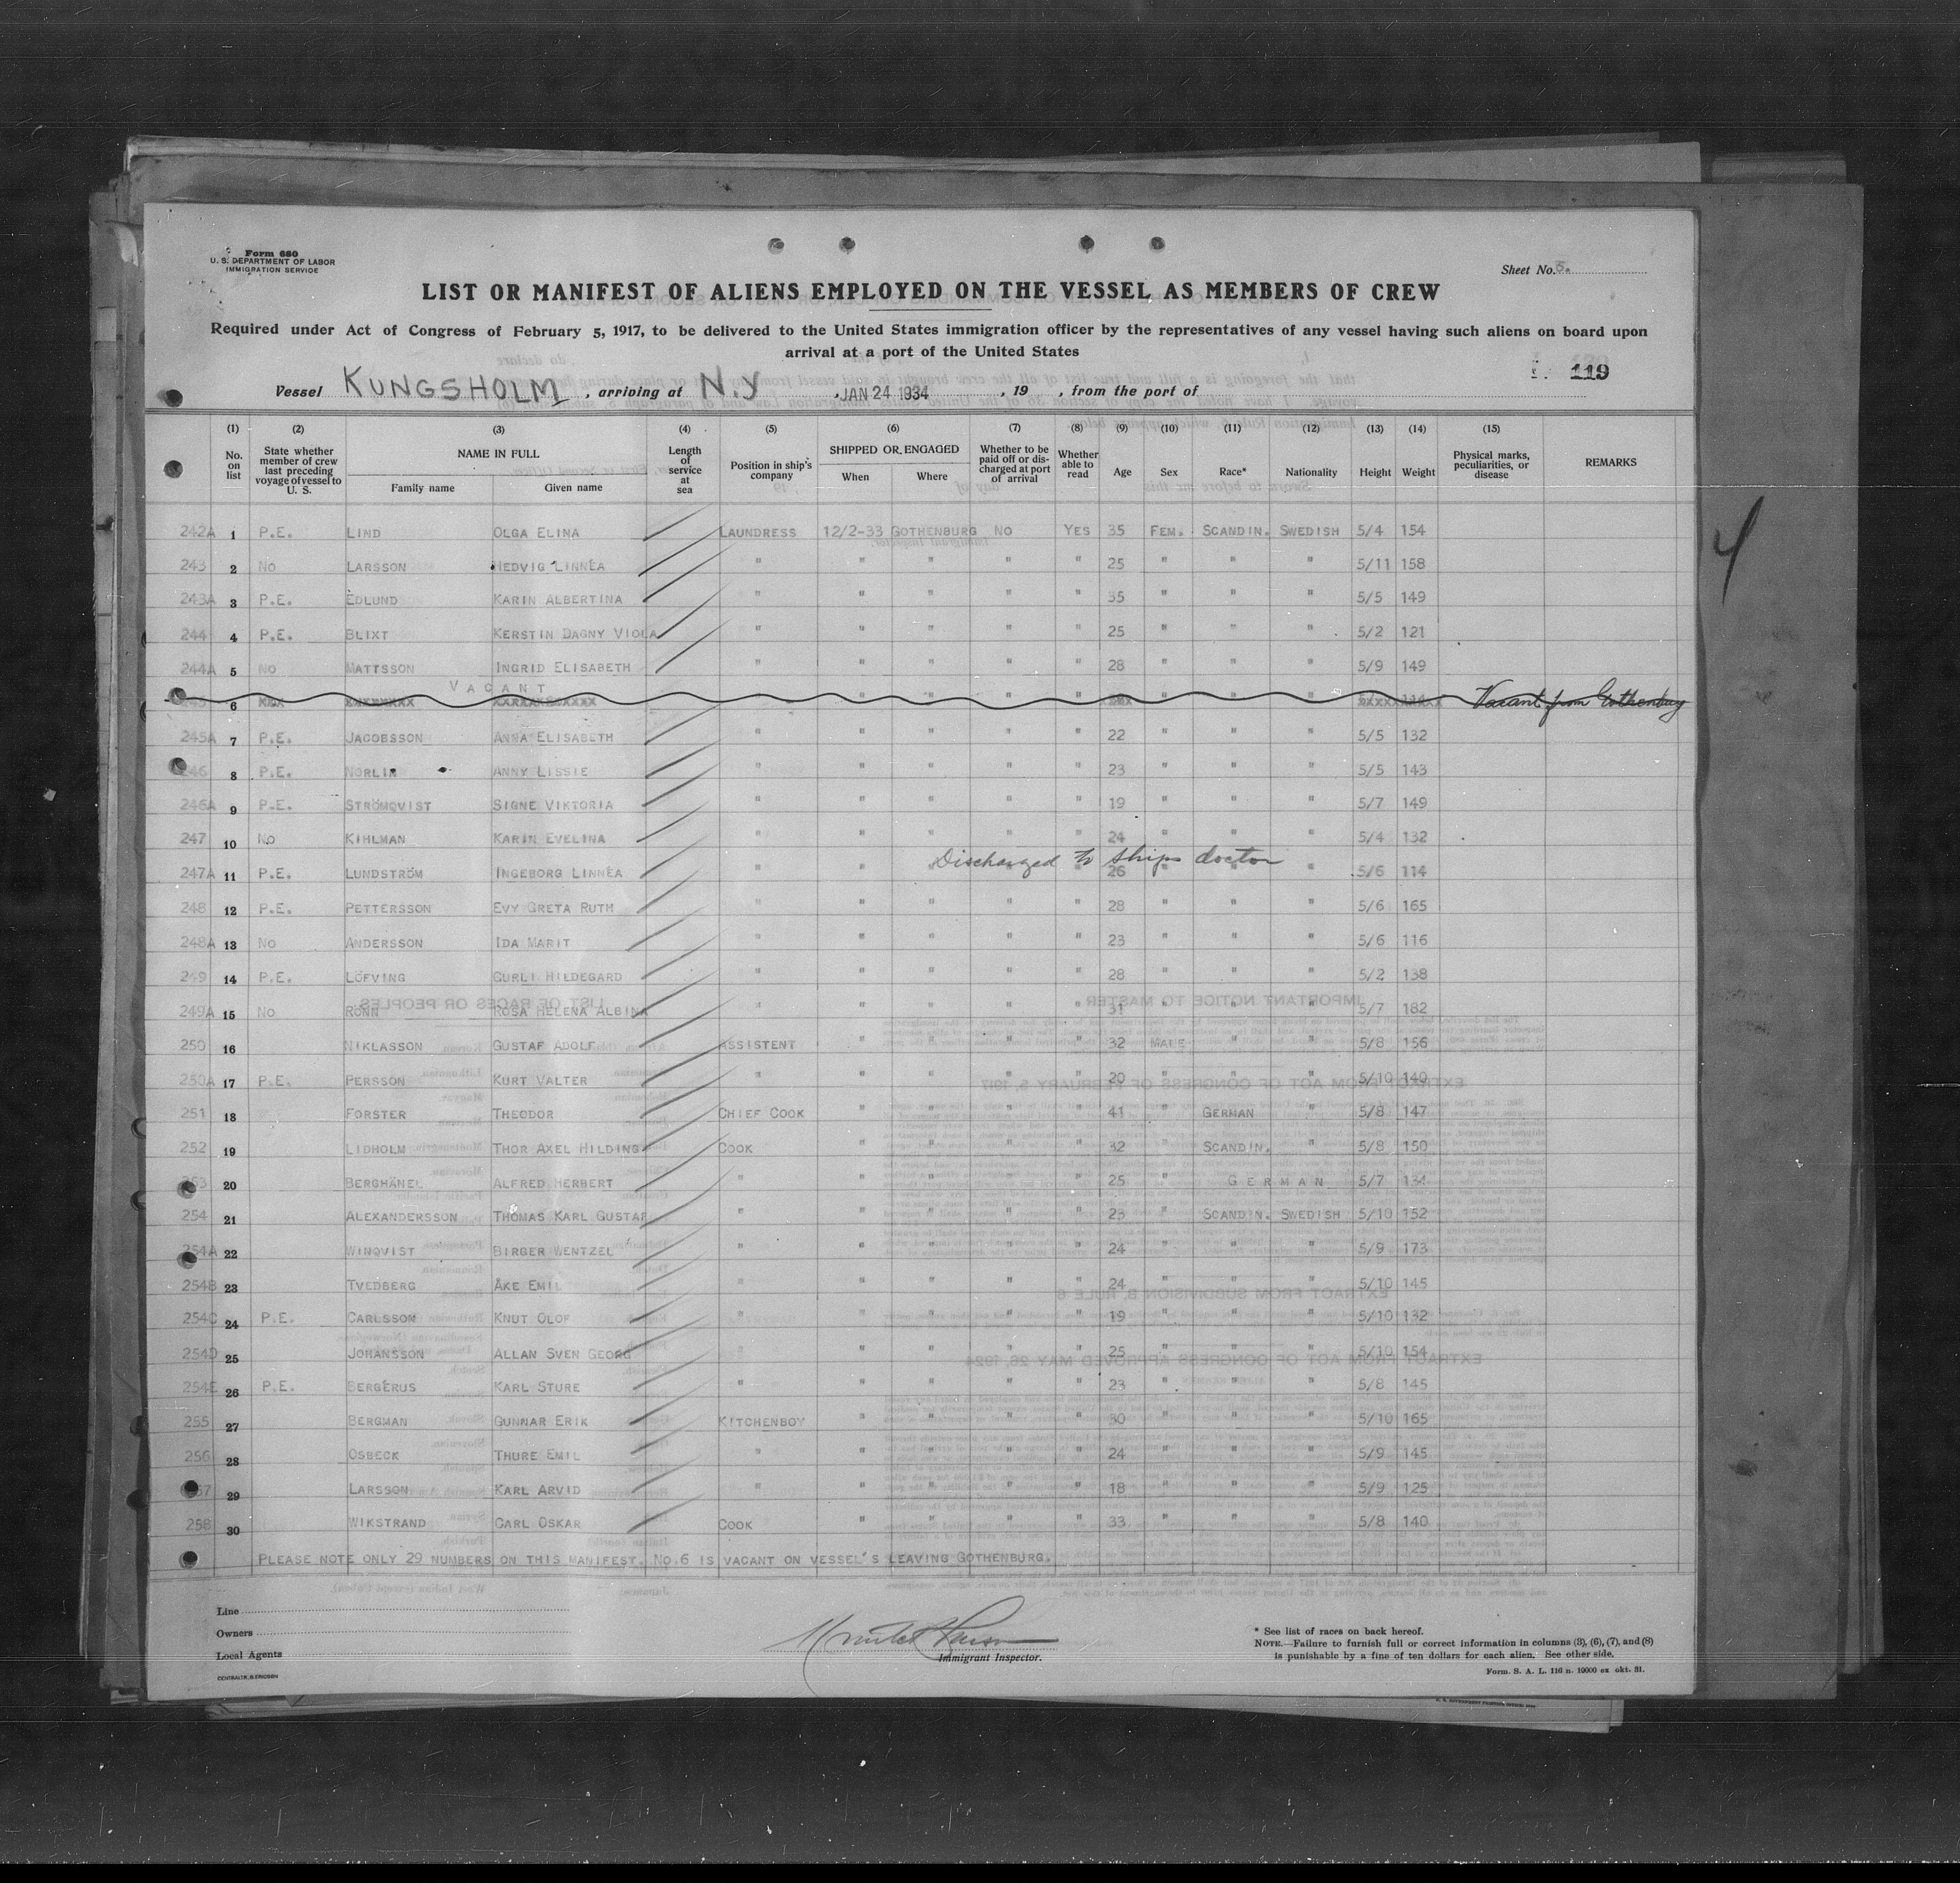 Form 680
U. S. DEPARTMENT OF LABOR
IMMIGRATION SERVICE
Sheet No.
LIST OR MANIFEST OF ALIENS EMPLOYED ON THE VESSEL AS MEMBERS OF CREW
Required under Act of Congress of February 5, 1917, to be delivered to the United States immigration officer by the representatives of any vessel having such aliens on board upon
arrival at a port of the United States
119
Vessel KUNGSHOLM, arriving at N.Y, JAN 24 1934, 19 , from the port of
(1) (2) (3) (4) (5) (6) (7) (8) (9) (10) (11) (12) (13) (14) (15)
No. on list State whether member of crew last preceding voyage of vessel to U. S. NAME IN FULL Family name Given name Length of service at sea Position in ship's company SHIPPED OR ENGAGED When Where Whether to be paid off or discharged at port of arrival Whether able to read Age Sex Race* Nationality Height Weight Physical marks, peculiarities, or disease REMARKS
242A 1 P.E. LIND OLGA ELINA LAUNDRESS 12/2-33 GOTHENBURG NO YES 35 FEM. SCANDIN. SWEDISH 5/4 154
243 2 NO LARSSON HEDVIG LINNÉA " " " " " 25 " " " 5/11 158
243A 3 P.E. EDLUND KARIN ALBERTINA " " " " " 35 " " " 5/5 149
244 4 P.E. BLIXT KERSTIN DAGNY VIOLA " " " " " 25 " " " 5/2 121
244A 5 NO MATTSSON INGRID ELISABETH " " " " " 28 " " " 5/9 149
VACANT
6 Vacant from Gothenburg
245A 7 P.E. JACOBSSON ANNA ELISABETH " " " " " 22 " " " 5/5 132
246 8 P.E. NORLIN ANNY LISSIE " " " " " 23 " " " 5/5 143
246A 9 P.E. STRÖMQVIST SIGNE VIKTORIA " " " " " 19 " " " 5/7 149
247 10 NO KIHLMAN KARIN EVELINA " " " " " 24 " " " 5/4 132
Discharged to ships doctor
247A 11 P.E. LUNDSTRÖM INGEBORG LINNÉA " " " " " 26 " " " 5/6 114
248 12 P.E. PETTERSSON EVY GRETA RUTH " " " " " 28 " " " 5/6 165
248A 13 NO ANDERSSON IDA MARIT " " " " " 23 " " " 5/6 116
249 14 P.E. LÖFVING GURLI HILDEGARD " " " " " 28 " " " 5/2 138
249A 15 NO RÖNN ROSA HELENA ALBINA " " " " " 31 " " " 5/7 182
250 16 NIKLASSON GUSTAF ADOLF ASSISTENT " " " " 32 MALE " " 5/8 156
250A 17 P.E. PERSSON KURT VALTER " " " " " 20 " " " 5/10 140
251 18 FORSTER THEODOR CHIEF COOK " " " " 41 " GERMAN " 5/8 147
252 19 LIDHOLM THOR AXEL HILDING COOK " " " " 32 " SCANDIN. " 5/8 150
253 20 BERGHÄNEL ALFRED HERBERT " " " " " 25 " GERMAN 5/7 134
254 21 ALEXANDERSSON THOMAS KARL GUSTAF " " " " " 23 " SCANDIN. SWEDISH 5/10 152
254A 22 WINQVIST BIRGER WENTZEL " " " " " 24 " " " 5/9 173
254B 23 TVEDBERG ÅKE EMIL " " " " " 24 " " " 5/10 145
254C 24 P.E. CARLSSON KNUT OLOF " " " " " 19 " " " 5/10 132
254D 25 JOHANSSON ALLAN SVEN GEORG " " " " " 25 " " " 5/10 154
254E 26 P.E. BERGÉRUS KARL STURE " " " " " 23 " " " 5/8 145
255 27 BERGMAN GUNNAR ERIK KITCHENBOY " " " " 30 " " " 5/10 165
256 28 OSBECK THURE EMIL " " " " " 24 " " " 5/9 145
257 29 LARSSON KARL ARVID " " " " " 18 " " " 5/9 125
258 30 WIKSTRAND CARL OSKAR COOK " " " " 33 " " " 5/8 140
PLEASE NOTE ONLY 29 NUMBERS ON THIS MANIFEST. NO.6 IS VACANT ON VESSEL'S LEAVING GOTHENBURG.
4
Line
Owners
Local Agents
Immigrant Inspector.
* See list of races on back hereof.
NOTE.—Failure to furnish full or correct information in columns (3), (6), (7), and (8)
is punishable by a fine of ten dollars for each alien. See other side.
Form. S. A. L. 116 n. 10000 ex okt. 31.